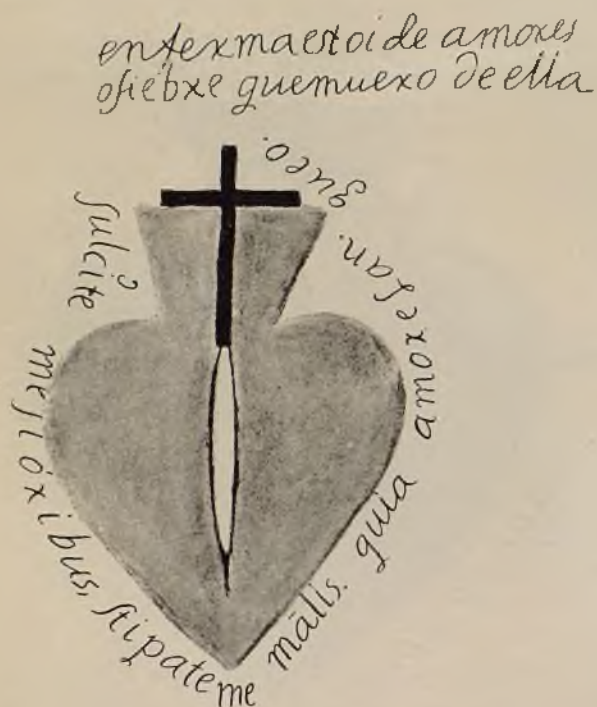 enfermaestoi de amores
ofiebre quemuero de ella
fulcite meflóribus, stipateme mālis. quia amorelan. gueo.